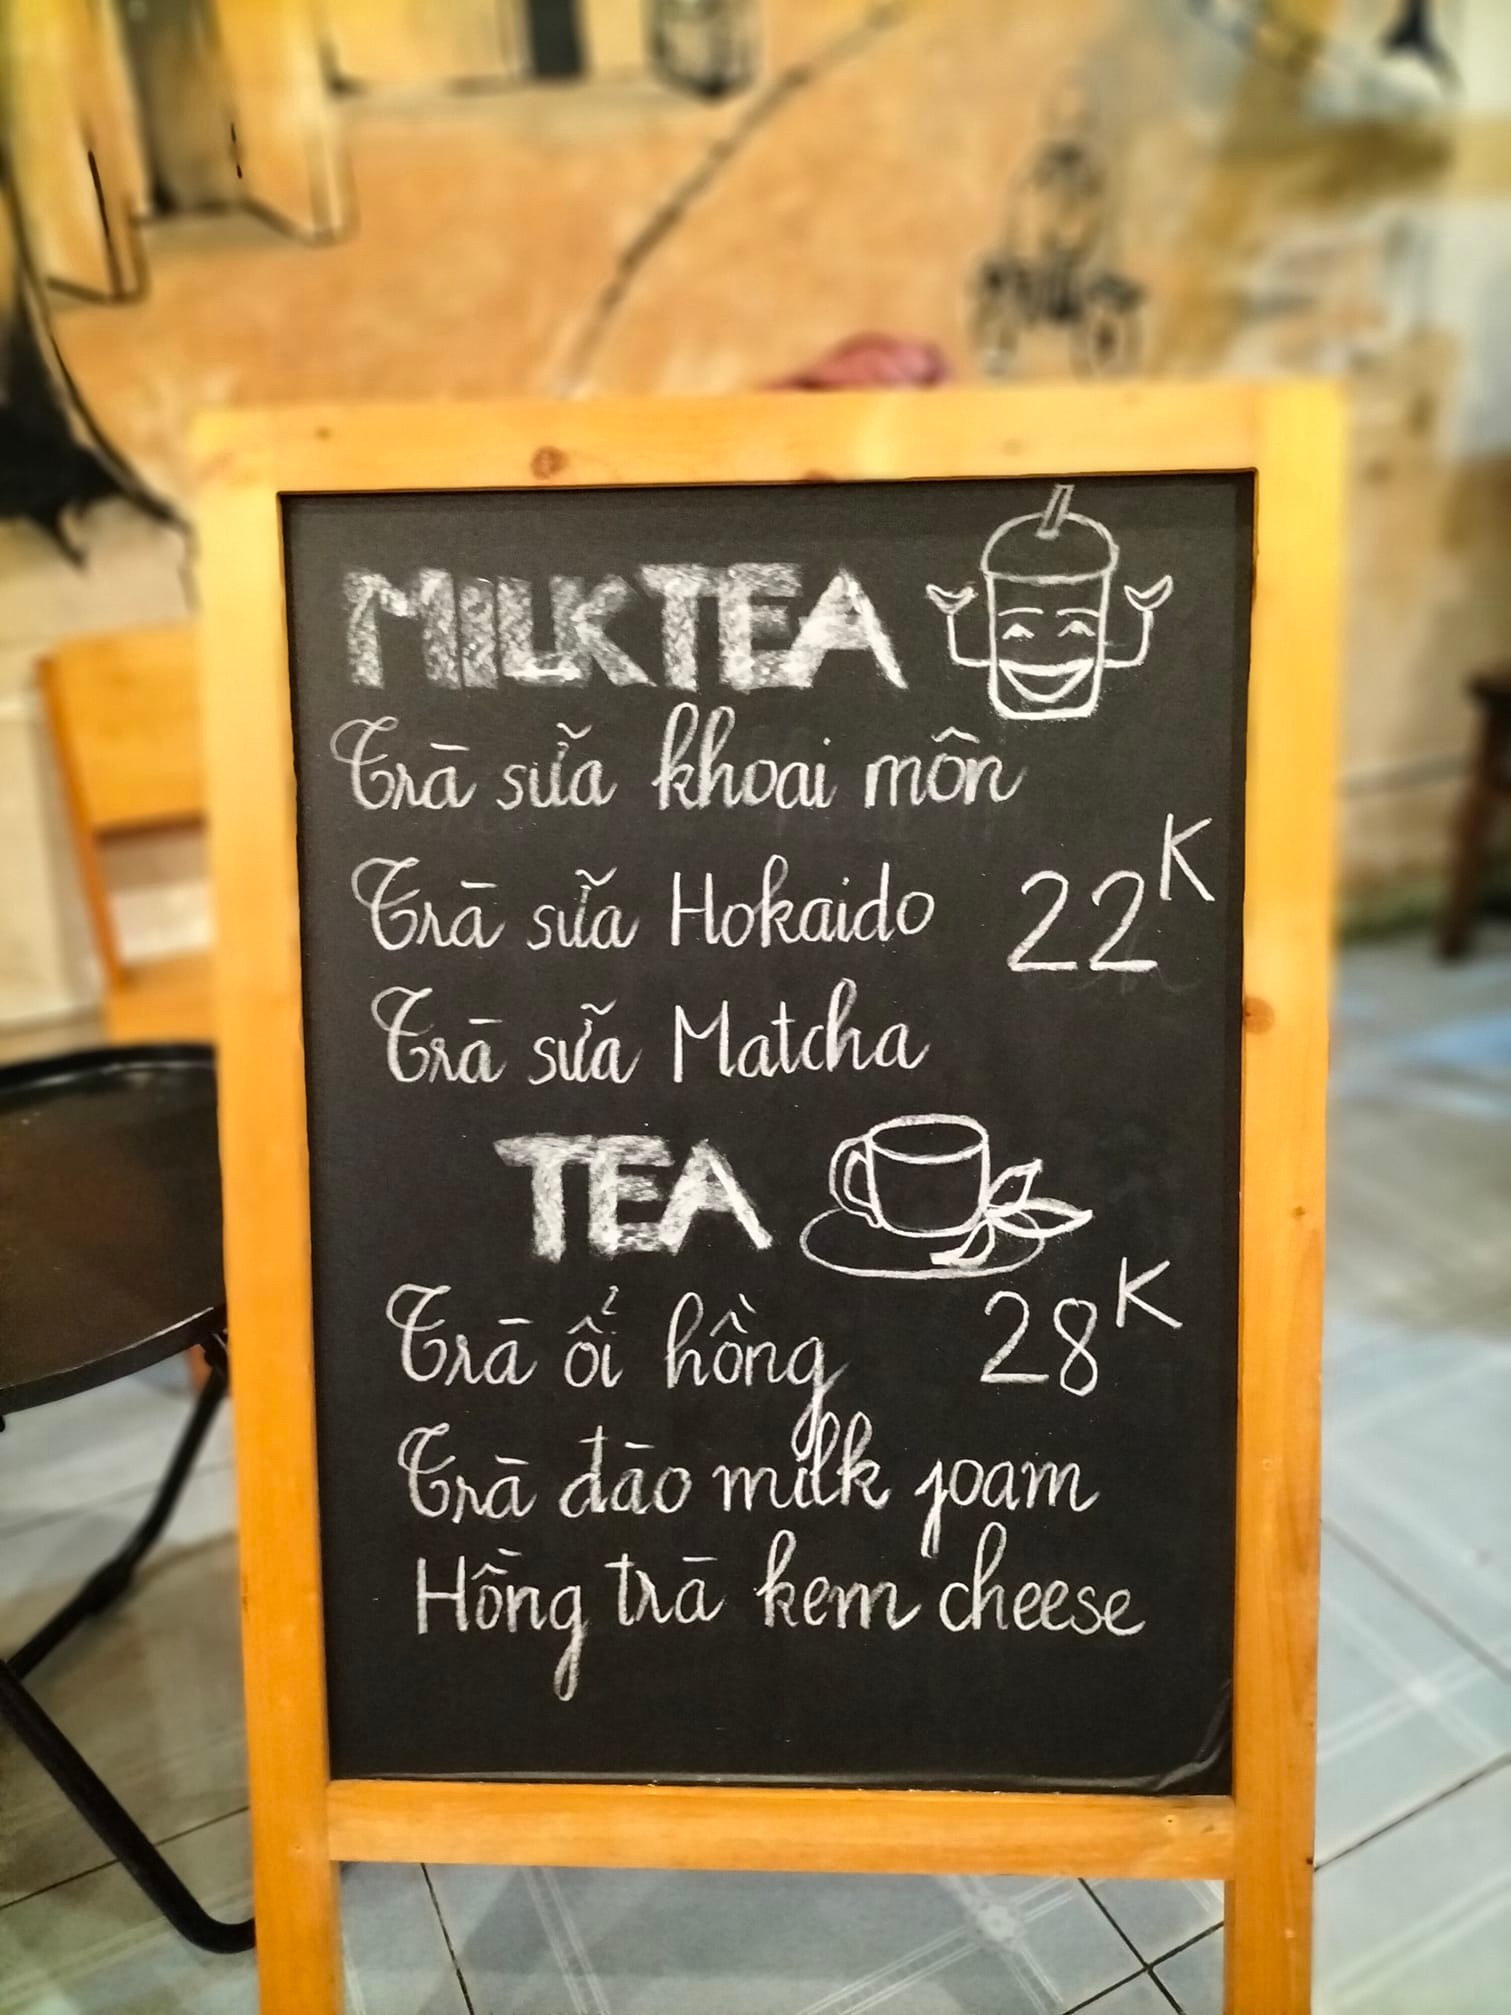 MILKTEA
Trà sữa khoai môn
Trà sữa Hokaido 22K
Trà sữa Matcha
TEA
Trà ổi hồng 28K
Trà đào milk foam
Hồng trà kem cheese